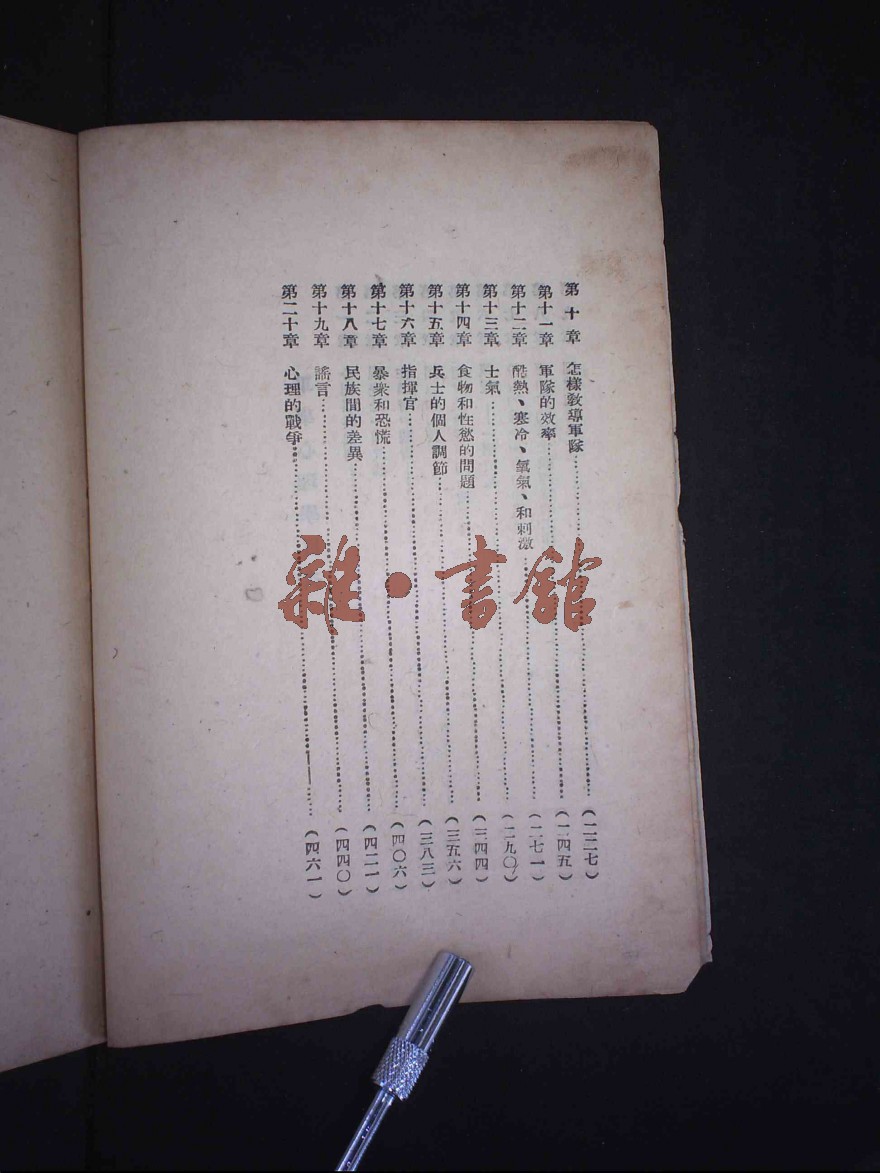 第十章 怎樣教導軍隊……(二二七)
第十一章 軍隊的效率……(二四五)
第十二章 酷熱、寒冷、氧氣、和刺激……(二七一)
第十三章 士氣……(二九〇)
第十四章 食物和性慾的問題……(三四四)
第十五章 兵士的個人調節……(三五六)
第十六章 指揮官……(三八三)
第十七章 暴衆和恐慌……(四〇六)
第十八章 民族間的差異……(四二一)
第十九章 謠言……(四四〇)
第二十章 心理的戰爭……(四六一)
雜·書館